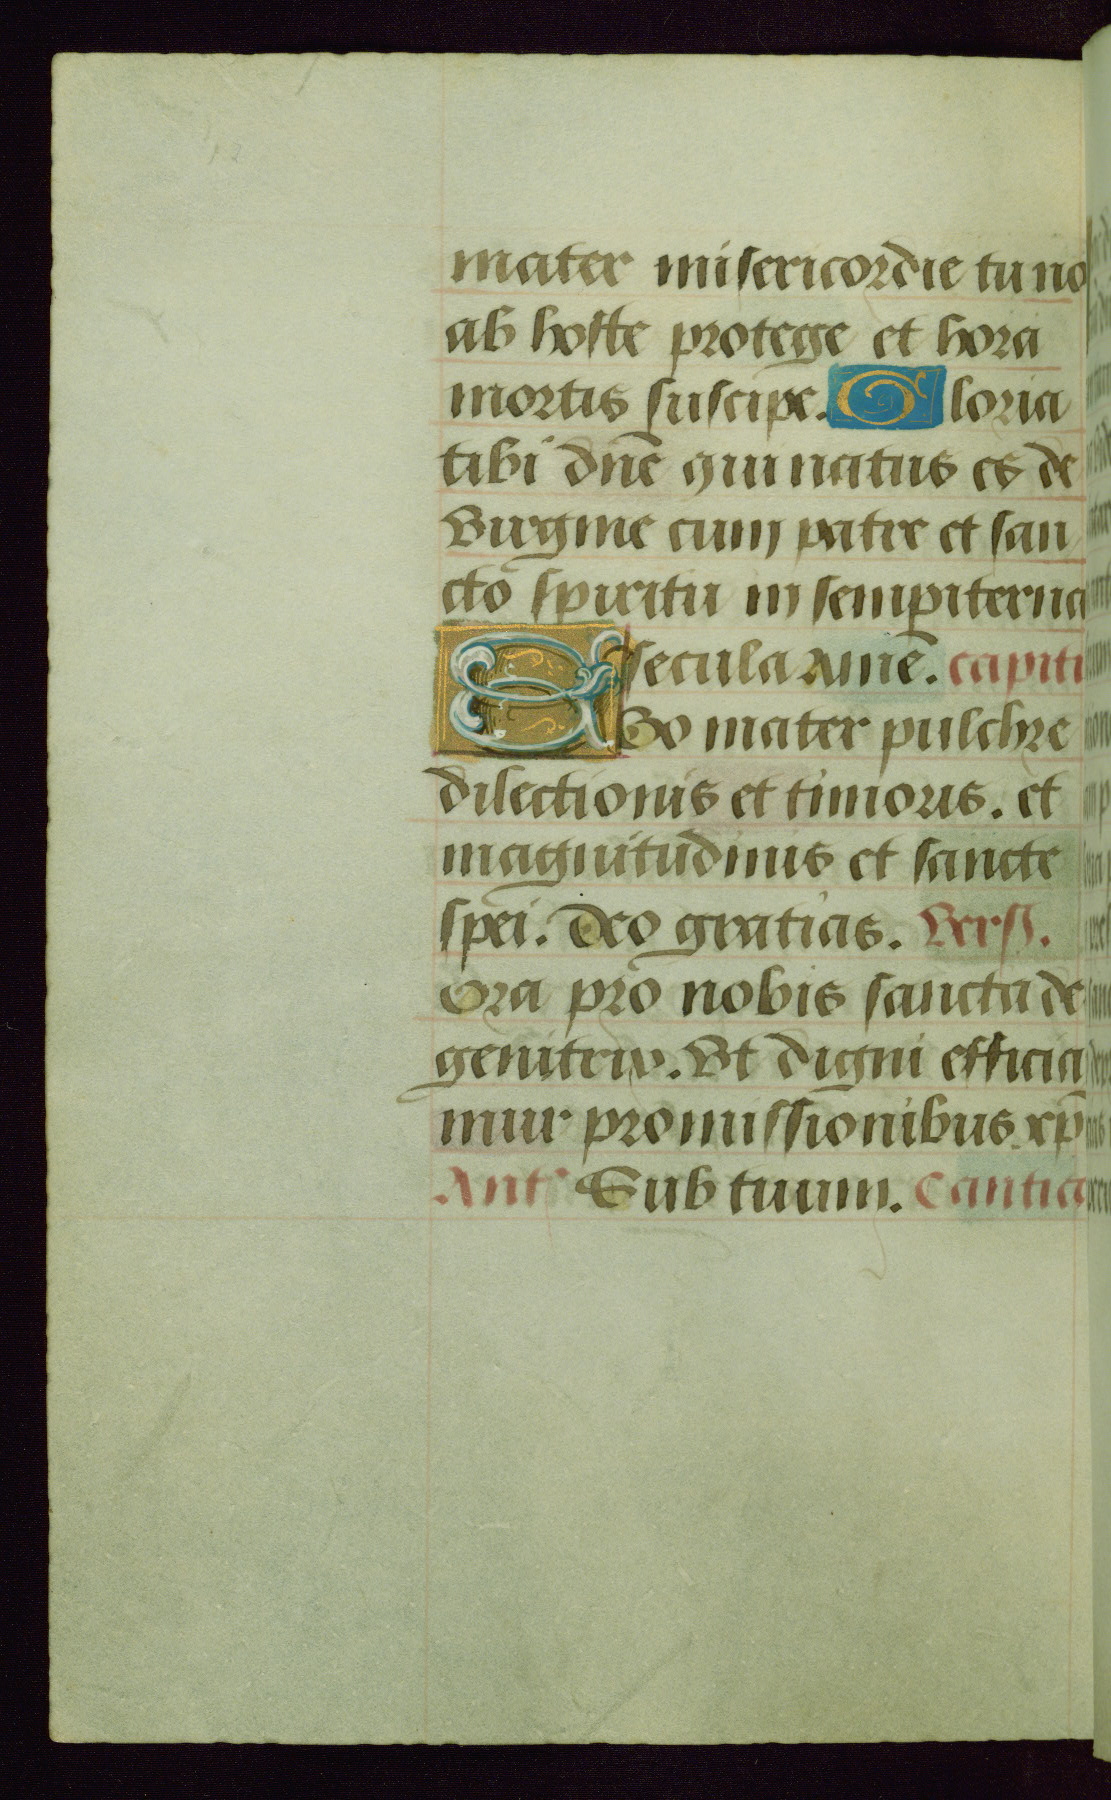 mater misericordie tu no
ab hoste protege et hora
mortis suscipe. Gloria
tibi dnē qui natus es de
Virgine cum patre et san
cto spiritu in sempiterna
secula Amē. capitl
Ego mater pulchre
dilectionis et timoris. et
magnitudinis et sancte
spei. deo gratias. Vers.
Ora pro nobis sancta dei
genitrix. Vt digni efficia
mur promissionibus xp̄i
Ant' Sub tuum. Cantic